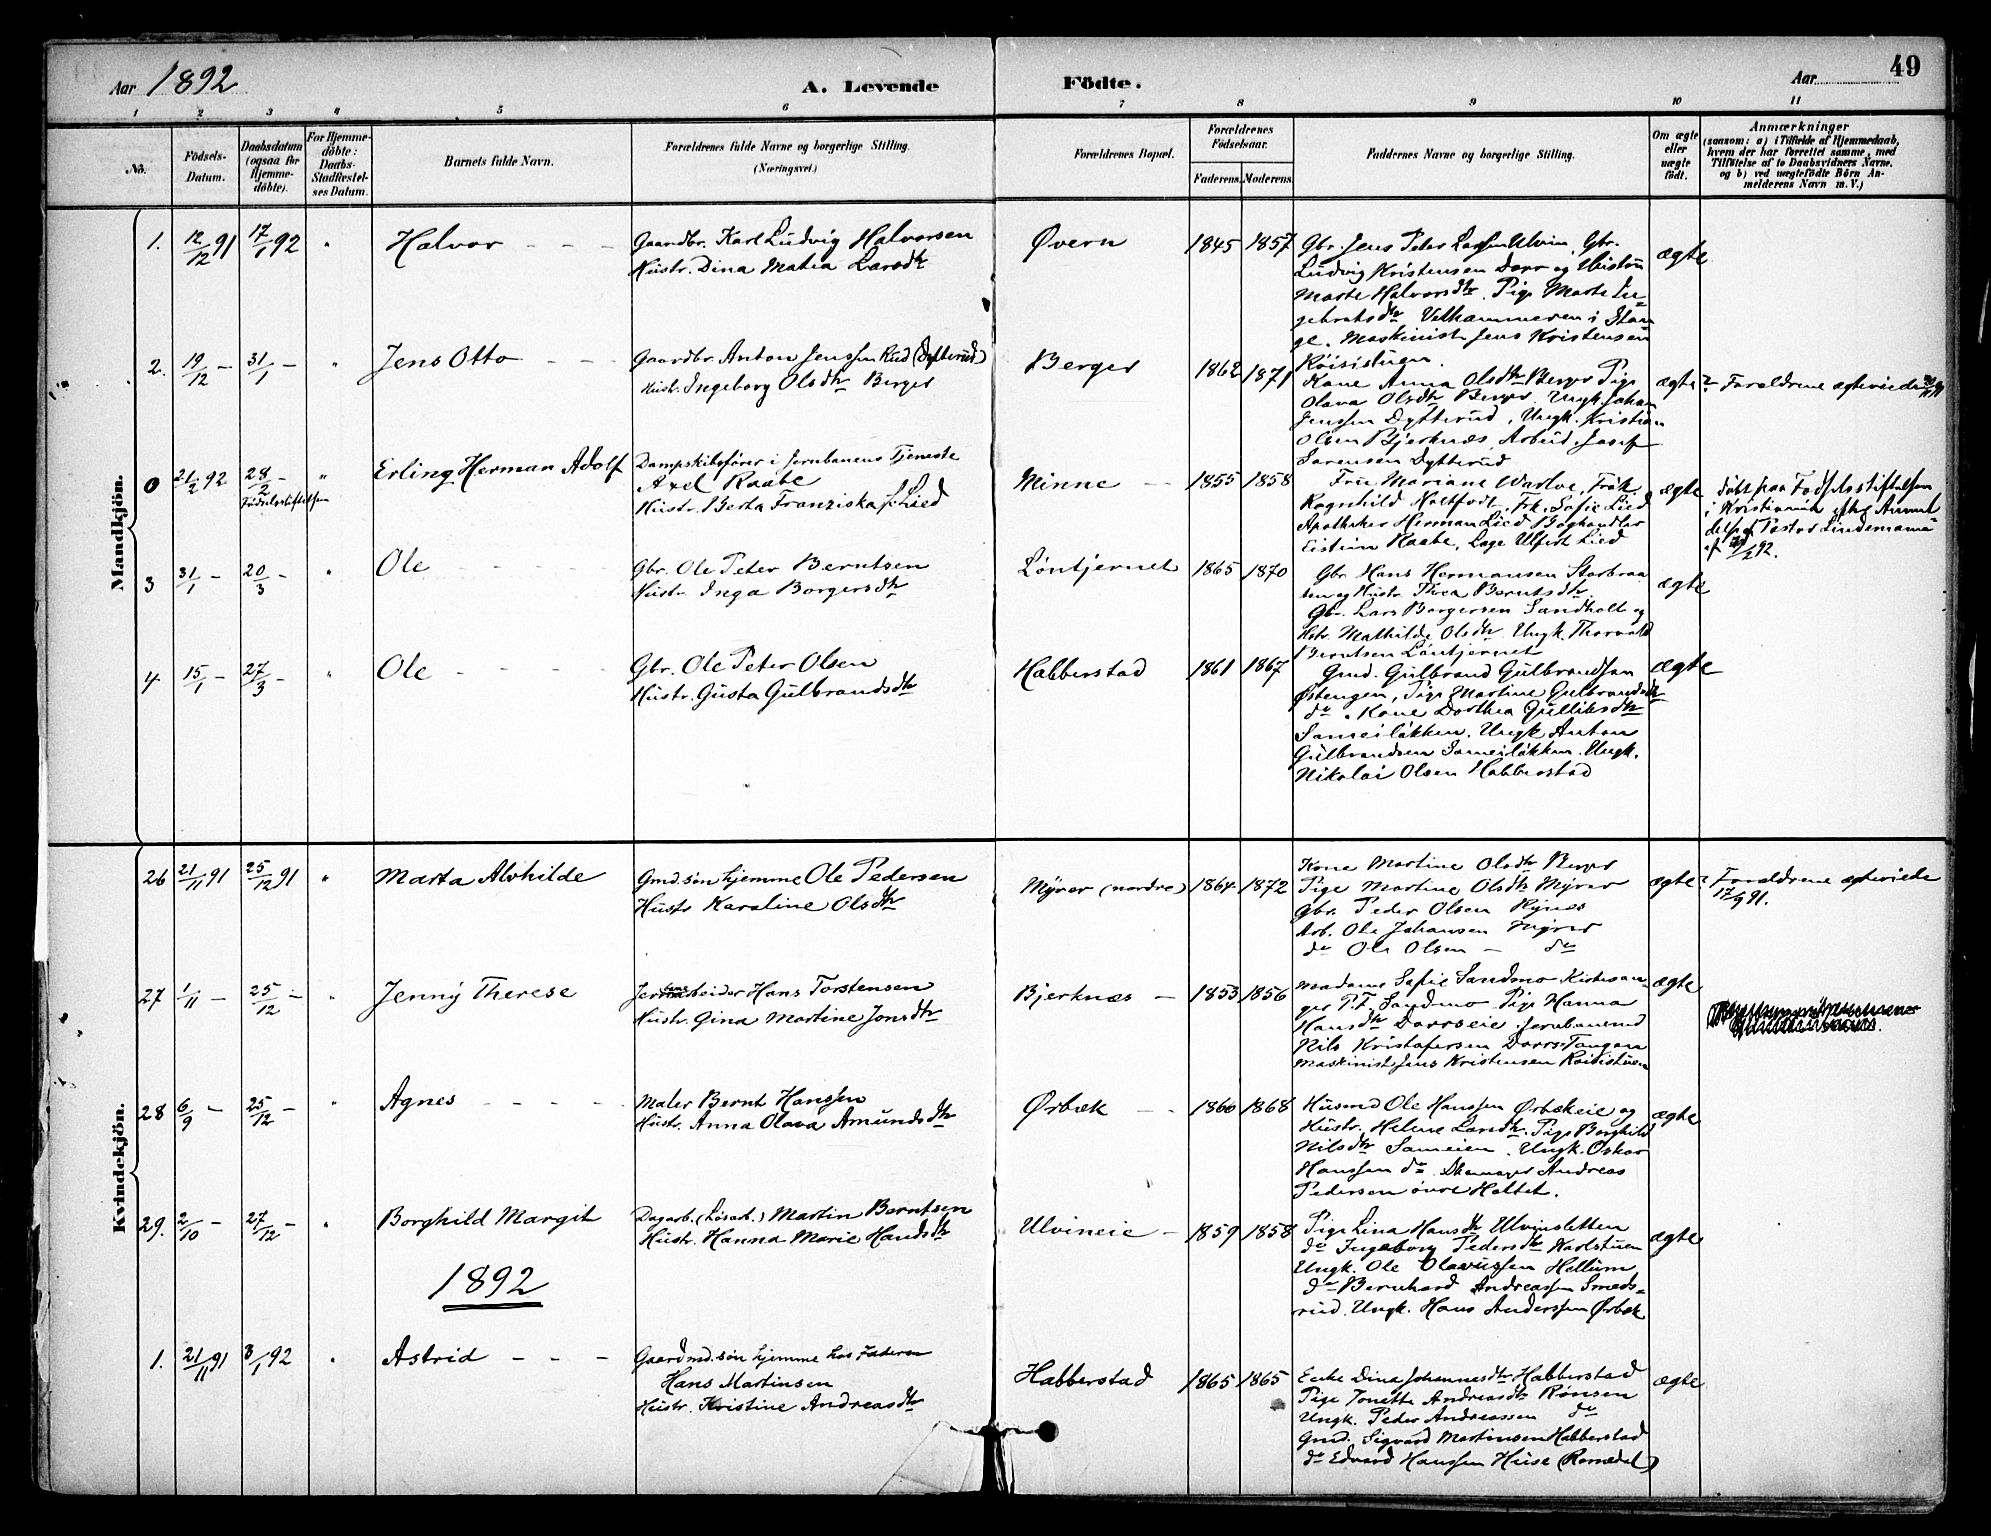 Aar 1892
A. Levende
Födte.
Aar
49
1 2 3 4 5 6 7 8 9 10 11
No.
Födsels-
Datum.
Daabsdatum
(ogsaa for
Hjemme-
döbte).
For Hjemme-
döbte:
Daabs-
Stadfæstel-
ses Datum.
Barnets fulde Navn.
Forældrenes fulde Navne og borgerlige Stilling.
(Næringsvei.)
Forældrenes Bopæl.
Forældrenes
Födselsaar.
Faderens. Moderens.
Faddernes Navne og borgerlige Stilling.
Om ægte
eller
uægte
födt.
Anmærkninger
(saasom: a) i Tilfælde af Hjemmedaab,
hvem der har forrettet samme, med
Tilföielse af to Daabsvidners Navne,
og b) ved uægtefödte Börn An-
melderens Navn m. V.)
Mandkjön.
1. 12/12 91 17/1 92 " Halvor
Gaardbr. Karl Ludvig Halvorsen
Hustr. Dina Mathea Larsdtr
Øvern 1845 1857
Gbr. Jens Peter Larssen Ulvin, Gbr.
Ludvig Kristensen Dorr og Hustru
Marte Halvorsdtr. Pige Marte In-
gebretsdtr Velhammeren i Stan
ge. Maskinist Jens Kristensen
Röisistuen.
ægte
2. 19/12 – 31/1 – " Jens Otto
Gaardbr. Anton Jenssen Rud (Dytterud)
Hustr. Ingeborg Olsdtr Berger
Berger 1862 1871
Kone Anna Olsdtr Berger Pige
Olava Olsdtr Berger. Ungk. Johan
Jenssen Dytterud, Ungk. Kristian
Olsen Bjerknæs, Arbeid. Josef
Sørensen Dytterud
ægte
2. Forældrene ægteviede
0 21/2 92 28/2 – " Erling Herman Adolf
Födselsstiftelsen
Dampskibsförer i Jernbanens Tjeneste
Axel Raabe
Hustr. Berta Franziska f. Lied
Minne 1855 1858
Fru Mariane Warloe, Frök.
Ragnhild Holtfodt, Frk. Sofie Lied
Apotheker Herman Lied Boghandler
Eistein Raabe, Læge Ulfert Lied
ægte
döbt paa Födselsstiftelsen
i Kristiania efter Anmel
delse af Pastor Lindemann
3 31/1 – 20/3 – " Ole
Gbr. Ole Peter Berntsen
Hustr. Inga Borgersdtr
Løntjernet 1865 1870
Gbr Hans Hermansen Storbraa
ten og Hustr. Thea Berntsdtr
Gbr. Lars Borgersen Sandholt og
Hstr. Mathilde Olsdtr. Ungk. Thorvald
Berntsen Løntjernet
ægte
4 15/1 – 27/3 – " Ole
Gbr. Ole Peter Olsen
Hustr. Gusta Gulbrandsdtr
Habberstad 1861 1867
Gmd. Gulbrand Gulbrandsen
Østengen, Pige Martine Gulbrandsdtr
do. Kone Dorthea Gulliksdtr
Sameiløkken. Ungk Anton
Gulbrandsen Sameiløkken. Ungk.
Nikolai Olsen Habberstad
ægte
Kvindekjön.
26 21/11 91 25/12 91 " Marta Alvhilde
Gmd. søn hjemme Ole Pedersen
Hustr Karoline Olsdtr
Myrer (nordre) 1864 1872
Kone Martine Olsdtr Berger
Pige Martine Olsdtr Myrer
Gbr. Peder Olsen Rynes
Arb. Ole Johansen Myrer
do Ole Olsen – do
ægte
Forældrene ægteviede
17/9 91.
27 1/11 – 25/12 – " Jenny Therese
Jernbanearbeider Hans Torstensen
Hustr. Gina Martine Jonsdtr
Bjerknæs – 1853 1856
Madame Sofie Sandmo Kirkesan-
ger P.F. Sandmo Pige Hanna
Hansdtr Dorrseie. Jernbanemd
Nils Kristofersen Dorrs-Tangen
Maskinist Jens Kristensen Röisistuen
ægte
28 6/9 – 25/12 – " Agnes
Maler Bernt Hanssen
Hustr. Anna Olava Amundsdtr
Ørbæk 1860 1868
Husmd Ole Hanssen Ørbækeie og
Hustr. Helene Larsdtr. Pige Borghild
Nilsdtr Sameien. Ungk. Oskar
Hanssen do. Skomager Andreas
Pedersen övre Holtet.
ægte
29. 2/10 – 27/12 – " Borghild Margit
Dagarb. (Løsarb.) Martin Berntsen
Hustr. Hanna Marie Hansdtr
Ulvineie – 1859 1858
Pige Lina Hansdtr Ulvinsletten
do Ingeborg Pedersdtr Karlstuen
Ungk. Ole Olavussen Hellum,
do Bernhard Andreassen Smeds-
rud. Ungk. Hans Anderssen Ørbæk
ægte
1892
1. 21/11 91 3/1 92 " Astrid
Gaardmd. søn hjemme hos Faderen
Hans Martinsen
Hustr. Kristine Andreasdtr
Habberstad 1865 1865
Enke Dina Johannesdtr Habberstad
Pige Jonette Andreasdtr Rønsen
Ungk. Peder Andreassen do
Gmd. Sigvard Martinsen Habberstad
do Edvard Hanssen Huse (Romedal)
ægte